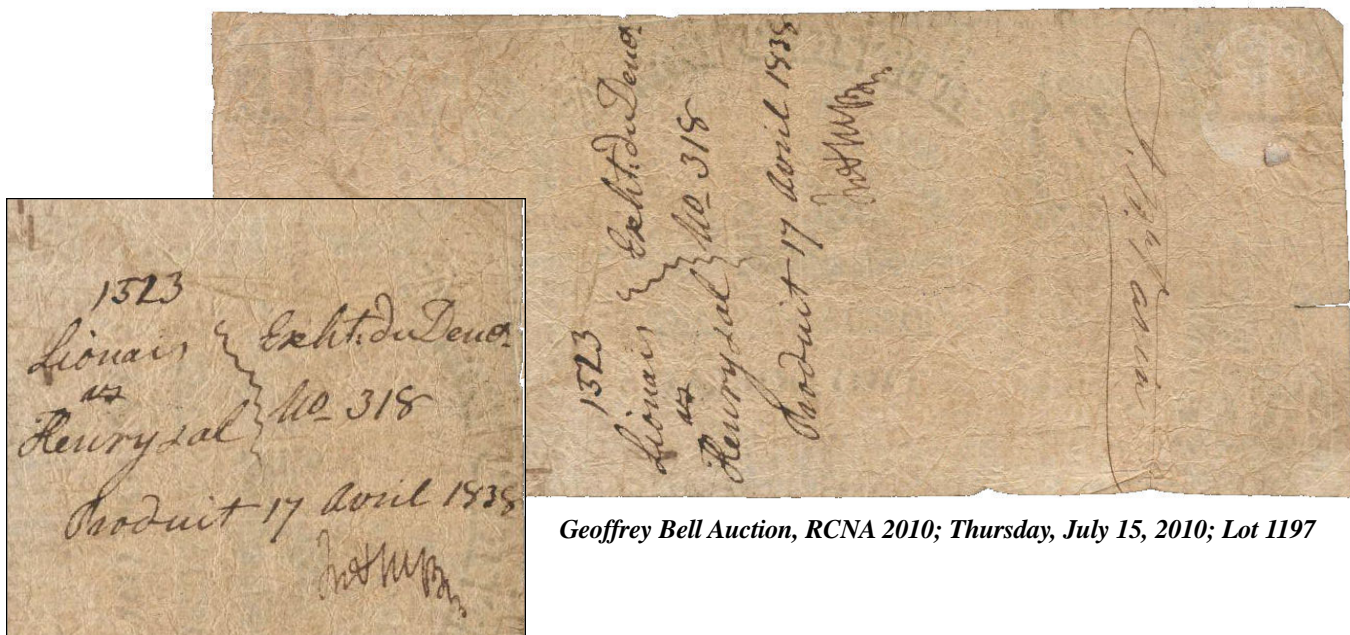 1523
Lionais
vs
Henry & al
Exht. du Demr
No 318
Produit 17 Avril 1838
1523
Lionais
vs
Henry & al
Exht. du Demr
No 318
Produit 17 Avril 1838
Geoffrey Bell Auction, RCNA 2010; Thursday, July 15, 2010; Lot 1197